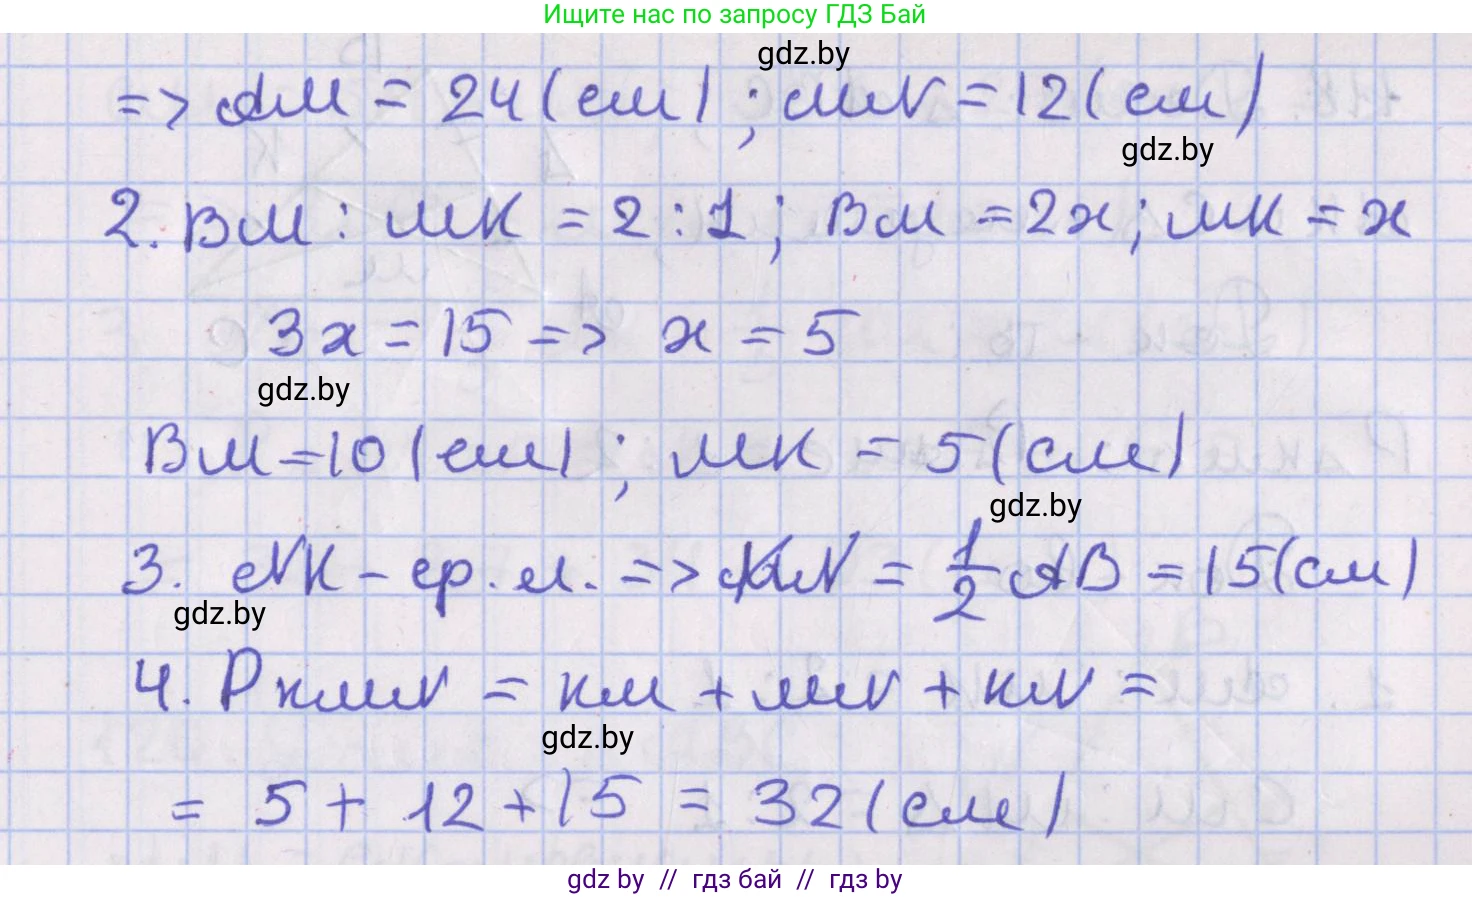 Ищите нас по запросу ГДЗ Бай
gdz.by
=> AM = 24 (см) ; MN = 12 (см)
gdz.by
2. BM : MK = 2 : 1 ; BM = 2x ; MK = x
3x = 15 => x = 5
gdz.by
BM = 10 (см) ; MK = 5 (см)
gdz.by
3. NK – ср. л. => KN = 1/2 AB = 15 (см)
gdz.by
4. P KMN = KM + MN + KN =
gdz.by
= 5 + 12 + 15 = 32 (см)
gdz by // гдз бай // гдз by